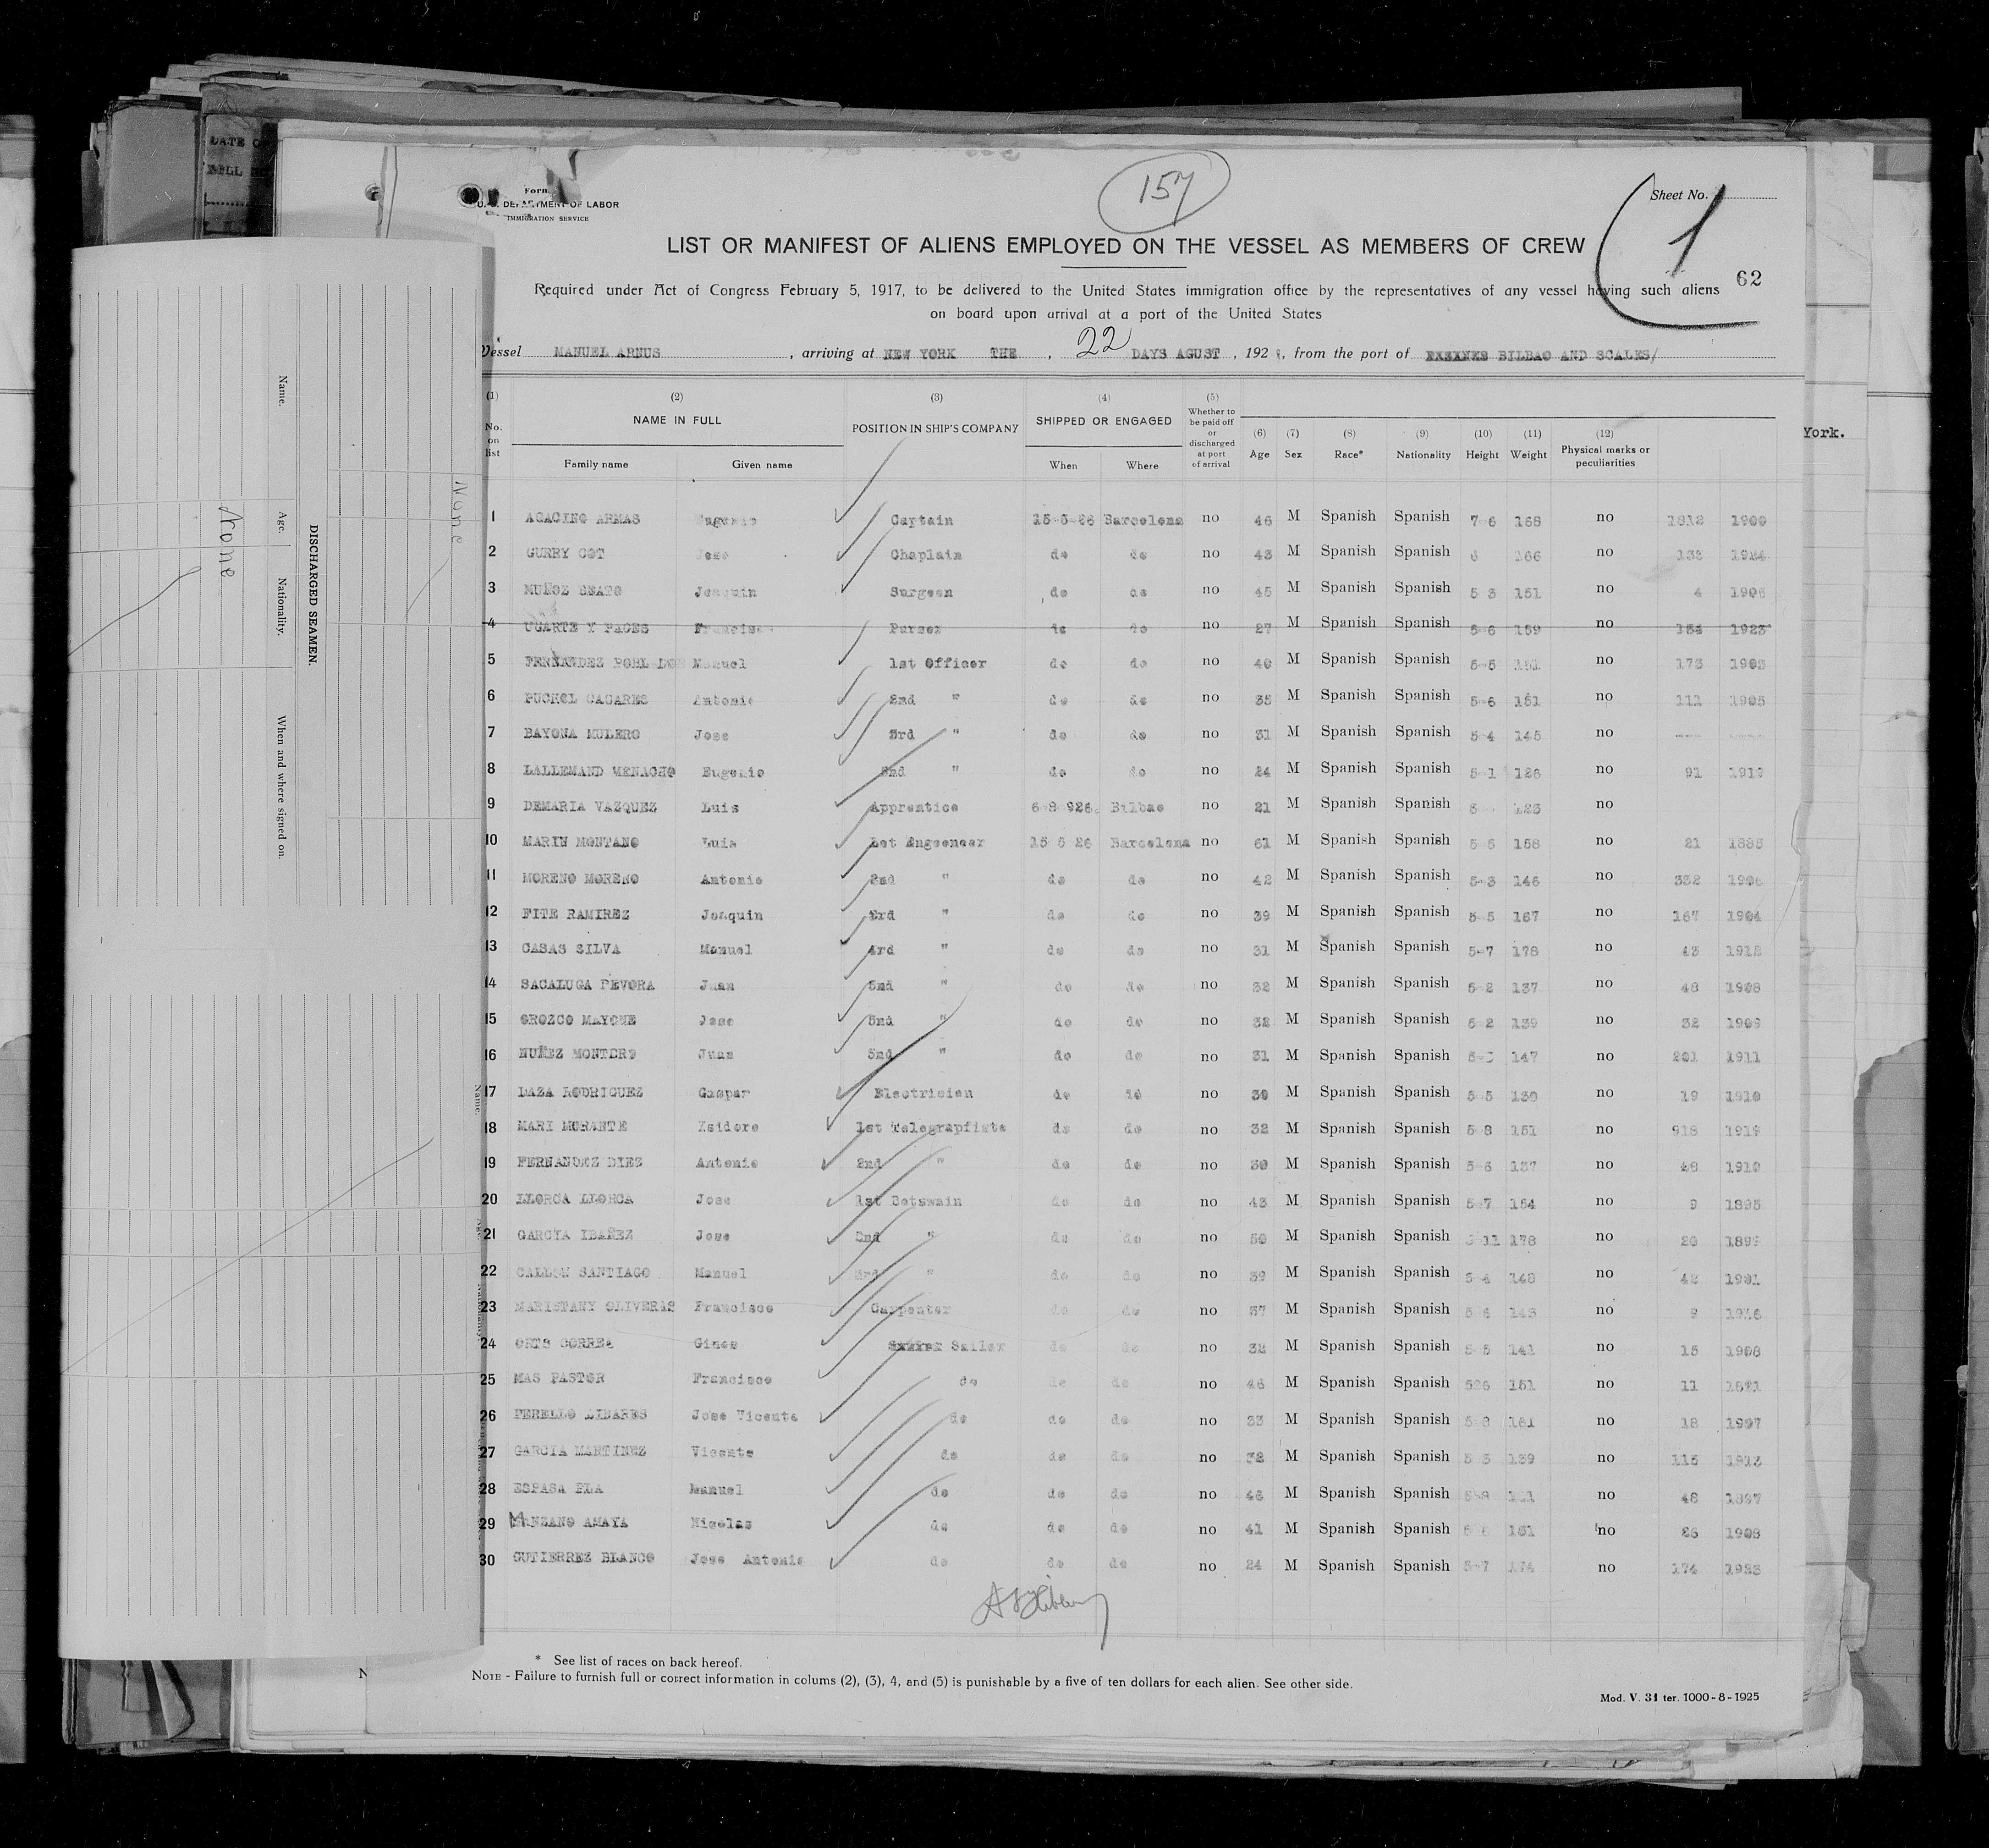 DATE O
157
Sheet No.
1
62
Form
U. S. DEPARTMENT OF LABOR
IMMIGRATION SERVICE
LIST OR MANIFEST OF ALIENS EMPLOYED ON THE VESSEL AS MEMBERS OF CREW
Required under Act of Congress February 5, 1917, to be delivered to the United States immigration office by the representatives of any vessel having such aliens
on board upon arrival at a port of the United States
Vessel MANUEL ARNUS, arriving at NEW YORK THE, 22 DAYS AGUST, 192, from the port of BILBAO AND SCALES/
(1) (2) (3) (4) (5)
No. on list NAME IN FULL POSITION IN SHIP'S COMPANY SHIPPED OR ENGAGED Whether to be paid off or discharged at port of arrival (6) Age (7) Sex (8) Race* (9) Nationality (10) Height (11) Weight (12) Physical marks or peculiarities
Family name Given name When Where
York.
1 AGACINO ARMAS Eugenio Captain 15-5-26 Barcelona no 46 M Spanish Spanish 168 no 1812 1900
2 GURRY COT Jose Chaplain do do no 43 M Spanish Spanish 6 166 no 1924
3 MUÑOZ BEATO Joaquin Surgeon do do no 45 M Spanish Spanish 5 3 151 no 4 1906
4 UGARTE Y PAGES Francisco Purser do do no 27 M Spanish Spanish 5-6 159 no 154 1923
5 FERNANDEZ Manuel 1st Officer do do no 40 M Spanish Spanish 5-5 no 173 1903
6 PUCHOL CASARES Antonio 2nd " do do no 35 M Spanish Spanish 5-6 151 no 111 1905
7 BAYONA MULERO Jose 3rd " do do no 31 M Spanish Spanish 5-4 145 no
8 LALLEMAND MENACHO Eugenio 3nd " do do no 24 M Spanish Spanish 5-1 126 no 91 1919
9 DEMARIA VAZQUEZ Luis Apprentice 6-8-926 Bilbao no 21 M Spanish Spanish no
10 MARIN MONTANO Luis 1st Angeeneer 15 5 26 Barcelona no 61 M Spanish Spanish 158 no 21 1885
11 MORENO MORENO Antonio 2nd " do do no 42 M Spanish Spanish 5-3 146 no 332 1906
12 FITE RAMIREZ Joaquin 3rd " do do no 39 M Spanish Spanish 5-5 167 no 167 1904
13 CASAS SILVA Manuel 4rd " do do no 31 M Spanish Spanish 5-7 178 no 43 1912
14 SACALUGA Juan 5nd " do do no 32 M Spanish Spanish 5-2 137 no 48 1908
15 OROZCO MAYONE Jose 5nd " do do no 32 M Spanish Spanish 5-2 139 no 32 1909
16 NUÑEZ MONTERO Juan 5nd " do do no 31 M Spanish Spanish 147 no 201 1911
17 LAZA RODRIGUEZ Gaspar Electrician do id no 30 M Spanish Spanish 5-5 no 19 1910
18 MARI MORANTE Isidoro 1st Telegrapfiste do do no 32 M Spanish Spanish 5-8 151 no 918 1919
19 FERNANDEZ DIEZ Antonio 2nd " do do no 30 M Spanish Spanish 5-6 137 no 1910
20 LLORCA LLORCA Jose 1st Botswain do do no 43 M Spanish Spanish 5-7 154 no 9 1895
21 GARCIA IBAÑEZ Jose 2nd " do do no 50 M Spanish Spanish 178 no 20 1899
22 SANTIAGO Manuel 3rd " do do no 39 M Spanish Spanish 148 no 42 1901
23 MARISTANY OLIVERAS Francisco Carpenter do do no 57 M Spanish Spanish no
24 ORTS CORREA Gines Sailor do do no 32 M Spanish Spanish 5-5 141 no 15 1908
25 MAS PASTOR Francisco do do do no 46 M Spanish Spanish 151 no 11
26 PERELLO LINARES Jose Vicente do do do no 33 M Spanish Spanish 161 no 18 1907
27 GARCIA MARTINEZ Vicente do do do no 32 M Spanish Spanish 5 3 139 no 115 1913
28 ESPASA PLA Manuel do do do no 46 M Spanish Spanish no 48 1897
29 MANZANO AMAYA Nicolas do do do no 41 M Spanish Spanish 161 no 1908
30 GUTIERREZ BLANCO Jose Antonio do do do no 24 M Spanish Spanish 5-7 174 no 174 1923
* See list of races on back hereof.
NOTE - Failure to furnish full or correct information in colums (2), (3), 4, and (5) is punishable by a five of ten dollars for each alien. See other side.
Mod. V. 31 ter. 1000-8-1925
DISCHARGED SEAMEN.
Name. Age. Nationality. When and where signed on.
None
None
Name.